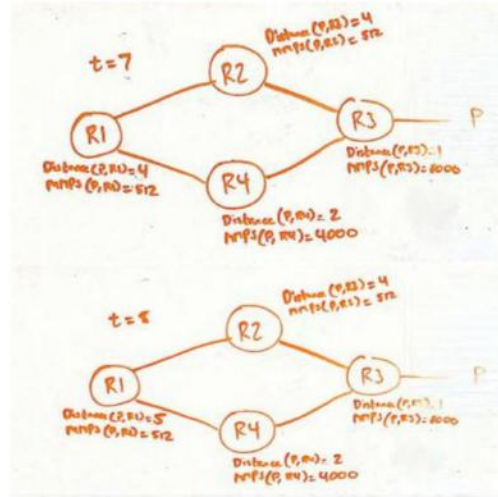 t=7
Distance (P,R2)=4
mmps(P,R2)=512
R2
R1
R3
P
Distance (P,R1)=4
mmps(P,R1)=512
Distance (P,R3)=1
mmps(P,R3)=1000
R4
Distance (P,R4)=2
mmps(P,R4)=4000
t=8
Distance (P,R2)=4
mmps(P,R2)=512
R2
R1
R3
P
Distance (P,R1)=5
mmps(P,R1)=512
Distance (P,R3)=1
mmps(P,R3)=1000
R4
Distance (P,R4)=2
mmps(P,R4)=4000